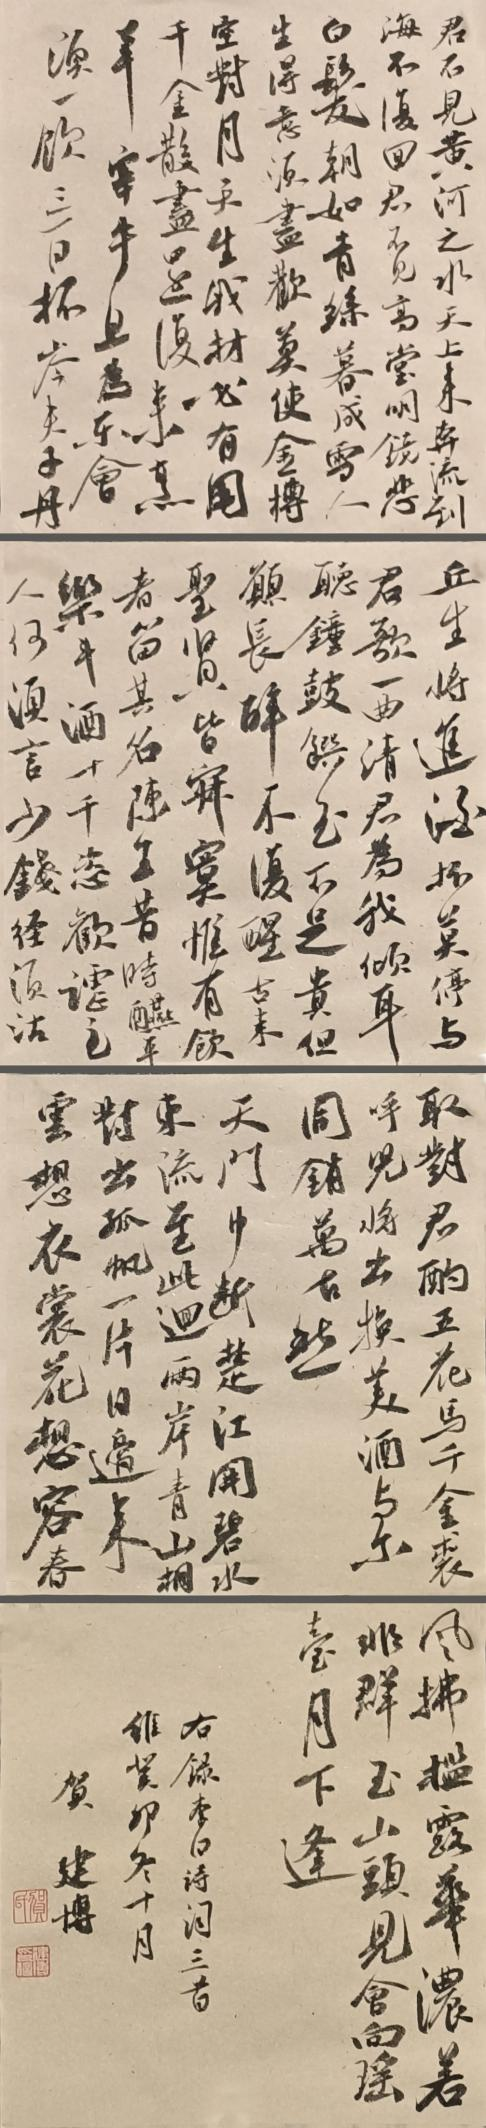 君不見黃河之水天上来奔流到
海不復回君不見高堂明鏡悲
白髮朝如青絲暮成雪人
生得意須盡歡莫使金樽
空對月天生我材必有用
千金散盡還復來烹
羊宰牛且為樂會
須一飲三百杯岑夫子丹
丘生將進酒杯莫停与
君歌一曲請君為我傾耳
聽鍾鼓饌玉不足貴但
願長醉不復醒古来
聖賢皆寂寞惟有飲
者留其名陳王昔時醼平
樂斗酒十千恣歡謔主
人何須言少錢径須沽
取對君酌五花馬千金裘
呼兒将出換美酒与尔
同銷萬古愁
天門中斷楚江開碧水
東流至此迴兩岸青山相
對出孤帆一片日邊来
雲想衣裳花想容春
風拂檻露華濃若
非群玉山頭見會向瑤
臺月下逢
右録李白詩詞三首
維癸卯冬十月
賀建博